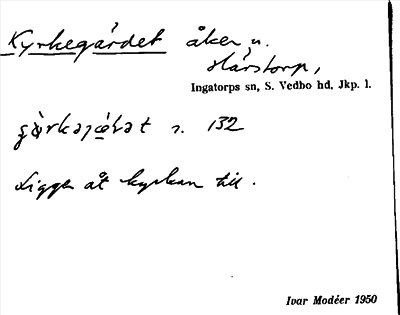 Kyrkegärdet åker, u.
Härstorp,
Ingatorps sn, S. Vedbo hd, Jkp. l.
s. 132
Ligger åt kyrkan till.
Ivar Modéer 1950